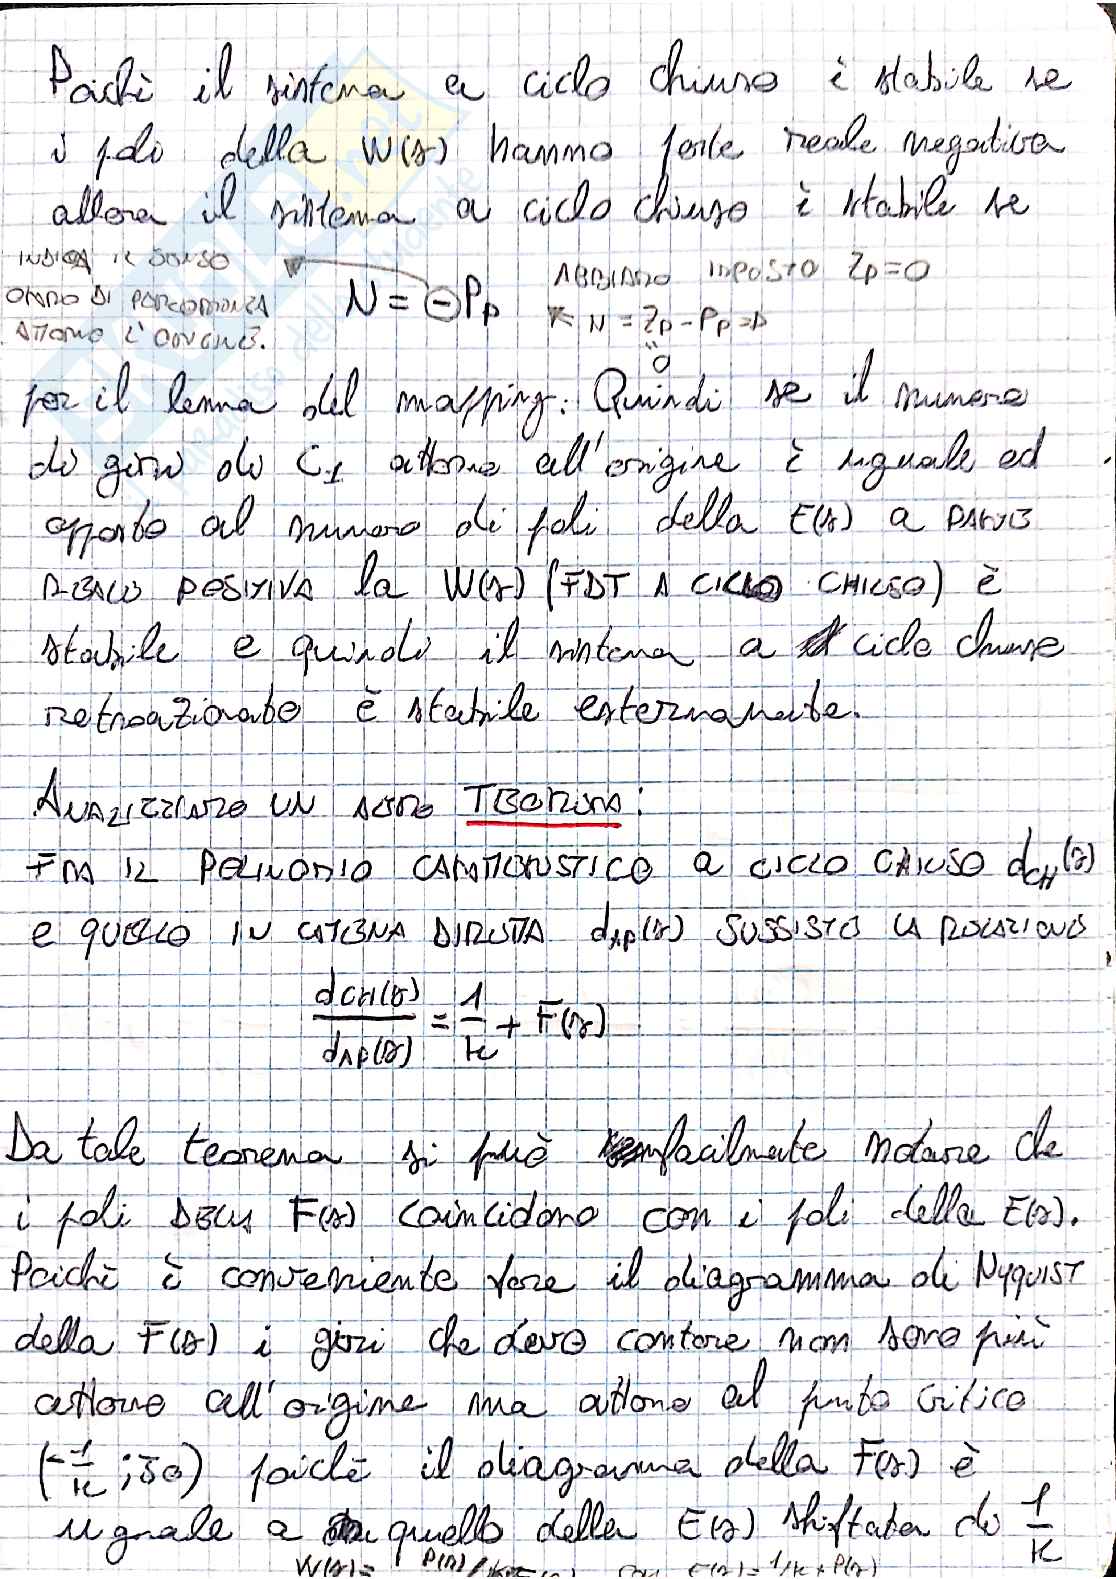 Poichè il sistema a ciclo chiuso è stabile se
i poli della W(s) hanno parte reale negativa
allora il sistema a ciclo chiuso è stabile se
INDICA IL SENSO
ORARIO DI PERCORRENZA
ATTORNO L'ORIGINE.
N = ⊖Pp
ABBIAMO IMPOSTO Zp=0
N = Zp - Pp =>
"
0
per il lemma del mapping. Quindi se il numero
di giri di C1 attorno all'origine è uguale ed
opposto al numero di poli della E(s) a PARTE
REALE POSITIVA la W(s) (FDT A CICLO CHIUSO) è
stabile e quindi il sistema a ciclo chiuso
retroazionato è stabile esternamente.
ANALIZZIAMO UN ALTRO TEOREMA:
FRA IL POLINOMIO CARATTERISTICO A CICLO CHIUSO dCH(s)
e QUELLO IN CATENA DIRETTA dAP(s) SUSSISTE LA RELAZIONE
dCH(s)/dAP(s) = 1/k + F(s)
Da tale teorema si può facilmente notare che
i poli DELLA F(s) coincidono con i poli della E(s).
Poichè è conveniente fare il diagramma di NYQUIST
della F(s) i giri che devo contare non sono più
attorno all'origine ma attorno al punto critico
(-1/k ; j0) poichè il diagramma della F(s) è
uguale a quello della E(s) shiftata di 1/k